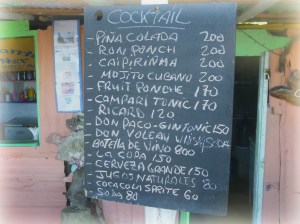 COCKTAIL
- PIÑA COLADA 200
- RON PONCH 200
- CAIPIRINHA 200
- MOJITO CUBANO 200
- FRUIT PONCHE 170
- CAMPARI TONIC 170
- RICARD 120
- DON PACO-GINTONIC 150
- DON VOLEAN WHISKYSODA
- BOTELLA DE VINO 800
- LA COPA 150
- CERVEZA GRANDE 150
- JUGOS NATURALES 80
- COCACOLA SPRITE 60
- SODA 80